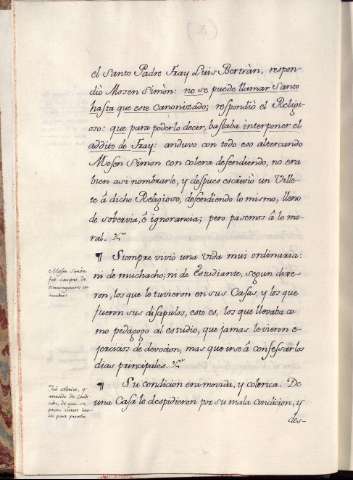 el Santo Padre Fray Luis Bertràn, respon-
diò Mosen Simòn: no se puede llamar Santo
hasta que este canonizado; respondiò el Religi-
oso: que para poderlo decer, bastava interponer el
addito de Fray: anduvo con todo eso altercando
Mosen Simon con colera defendiendo, no era
bien asi nombrarle, y despues escrivio un Ville-
te â dicho Religioso, defendiendo lo mismo, lleno
de sobervia, è ignorancia; pero pasemos â lo mo-
ral.
¶ Siempre viviò una vida mui ordinaria:
ni de muchacho; ni de Estudiante, segun dixe-
ron, los que le tuvieron en sus Casas, y los que
fueron sus disipulos, esto es, los que llevaba co-
mo pedagogo al estudio, que jamas le vieron e-
xercicios de devocion, mas que irse â confesar los
dias principales.
¶ Su condicion era mohina, y colerica. De
una Casa le despidieron por su mala condicion, y
des-
Mosen Simòn
fuè siempre de
Fuè colerico, y